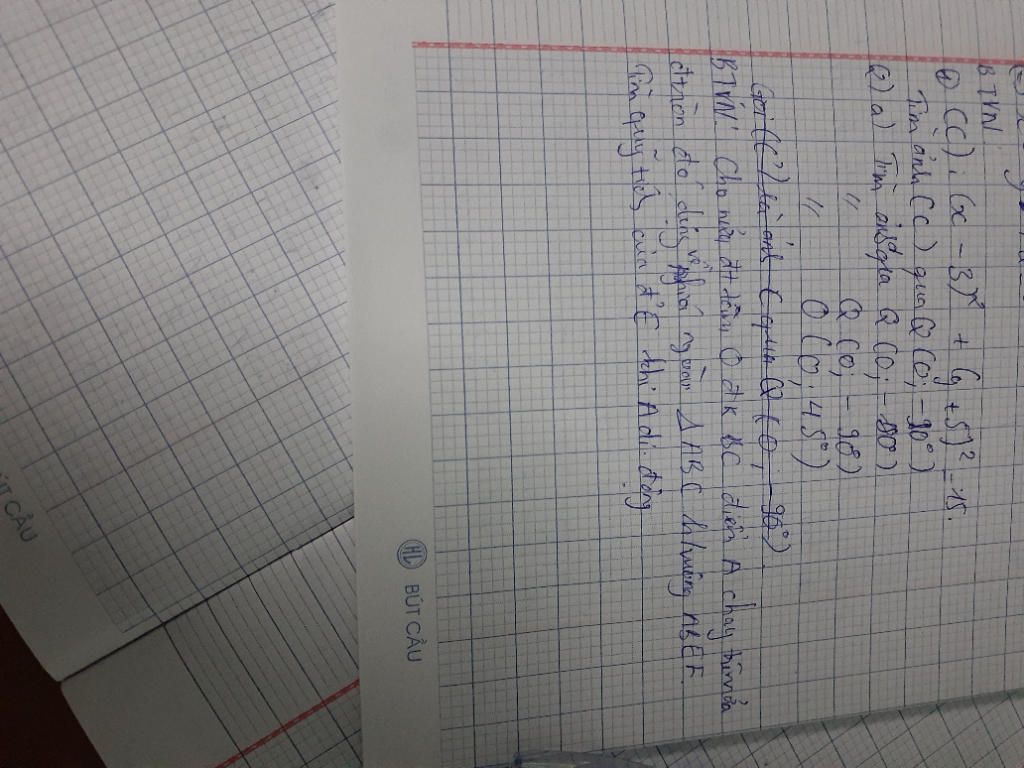 BTVN
① (C): (x - 3)² + (y + 5)² = 15.
Tìm ảnh (C) qua Q(O; -90°)
②) a) Tìm ảnh qua Q(O; -90°)
〃 Q(O; -90°)
〃 O(O; 45°)
Gọi (C') là ảnh C qua Q(O; -90°)
BTVN: Cho nửa đt tâm O đk BC điểm A chạy trên nửa
đtròn đó dựng về phía ngoài ΔABC h.vuông ABEF
Tìm quỹ tích của đ' E khi A di động
HL BÚT CẦU
BÚT CẦU